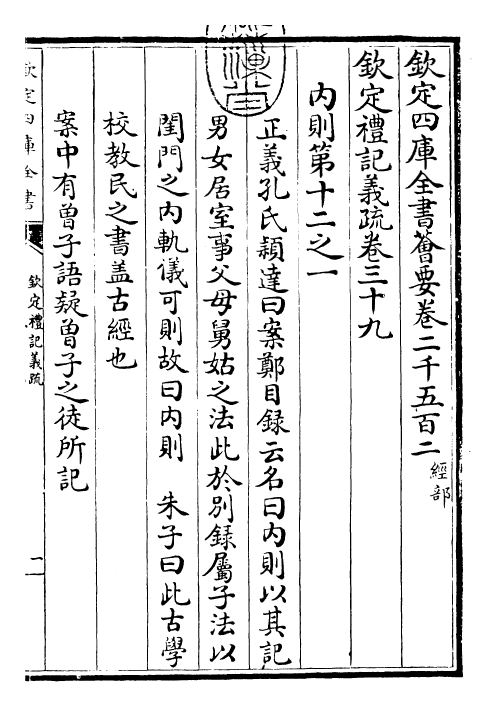 欽定四庫全書薈要卷二千五百二
經部
欽定禮記義疏卷三十九
内則第十二之一
正義孔氏穎達曰案鄭目録云名曰内則以其記
男女居室事父母舅姑之法此於別録屬子法以
閨門之内軌儀可則故曰内則 朱子曰此古學
校教民之書蓋古經也
案中有曾子語疑曾子之徒所記
欽定四庫全書
欽定禮記義疏